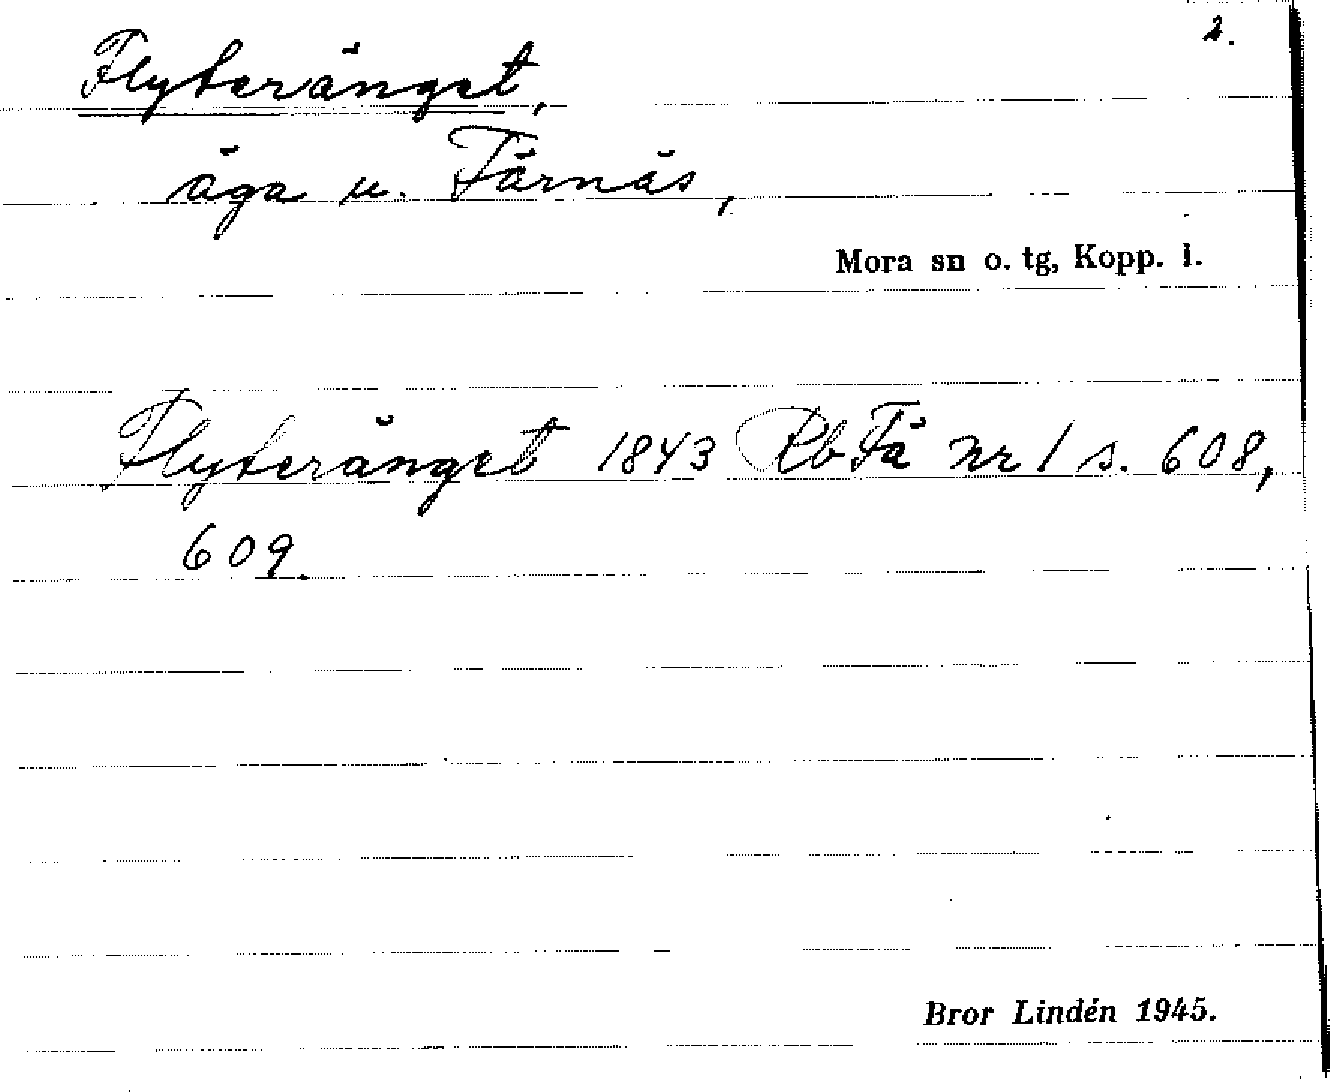 2.
Flyteränget,
äga u. Färnäs,
Mora sn o. tg, Kopp. l.
Flyteränget 1843 Rb Fä nr 1 s. 608,
609.
Bror Lindén 1945.